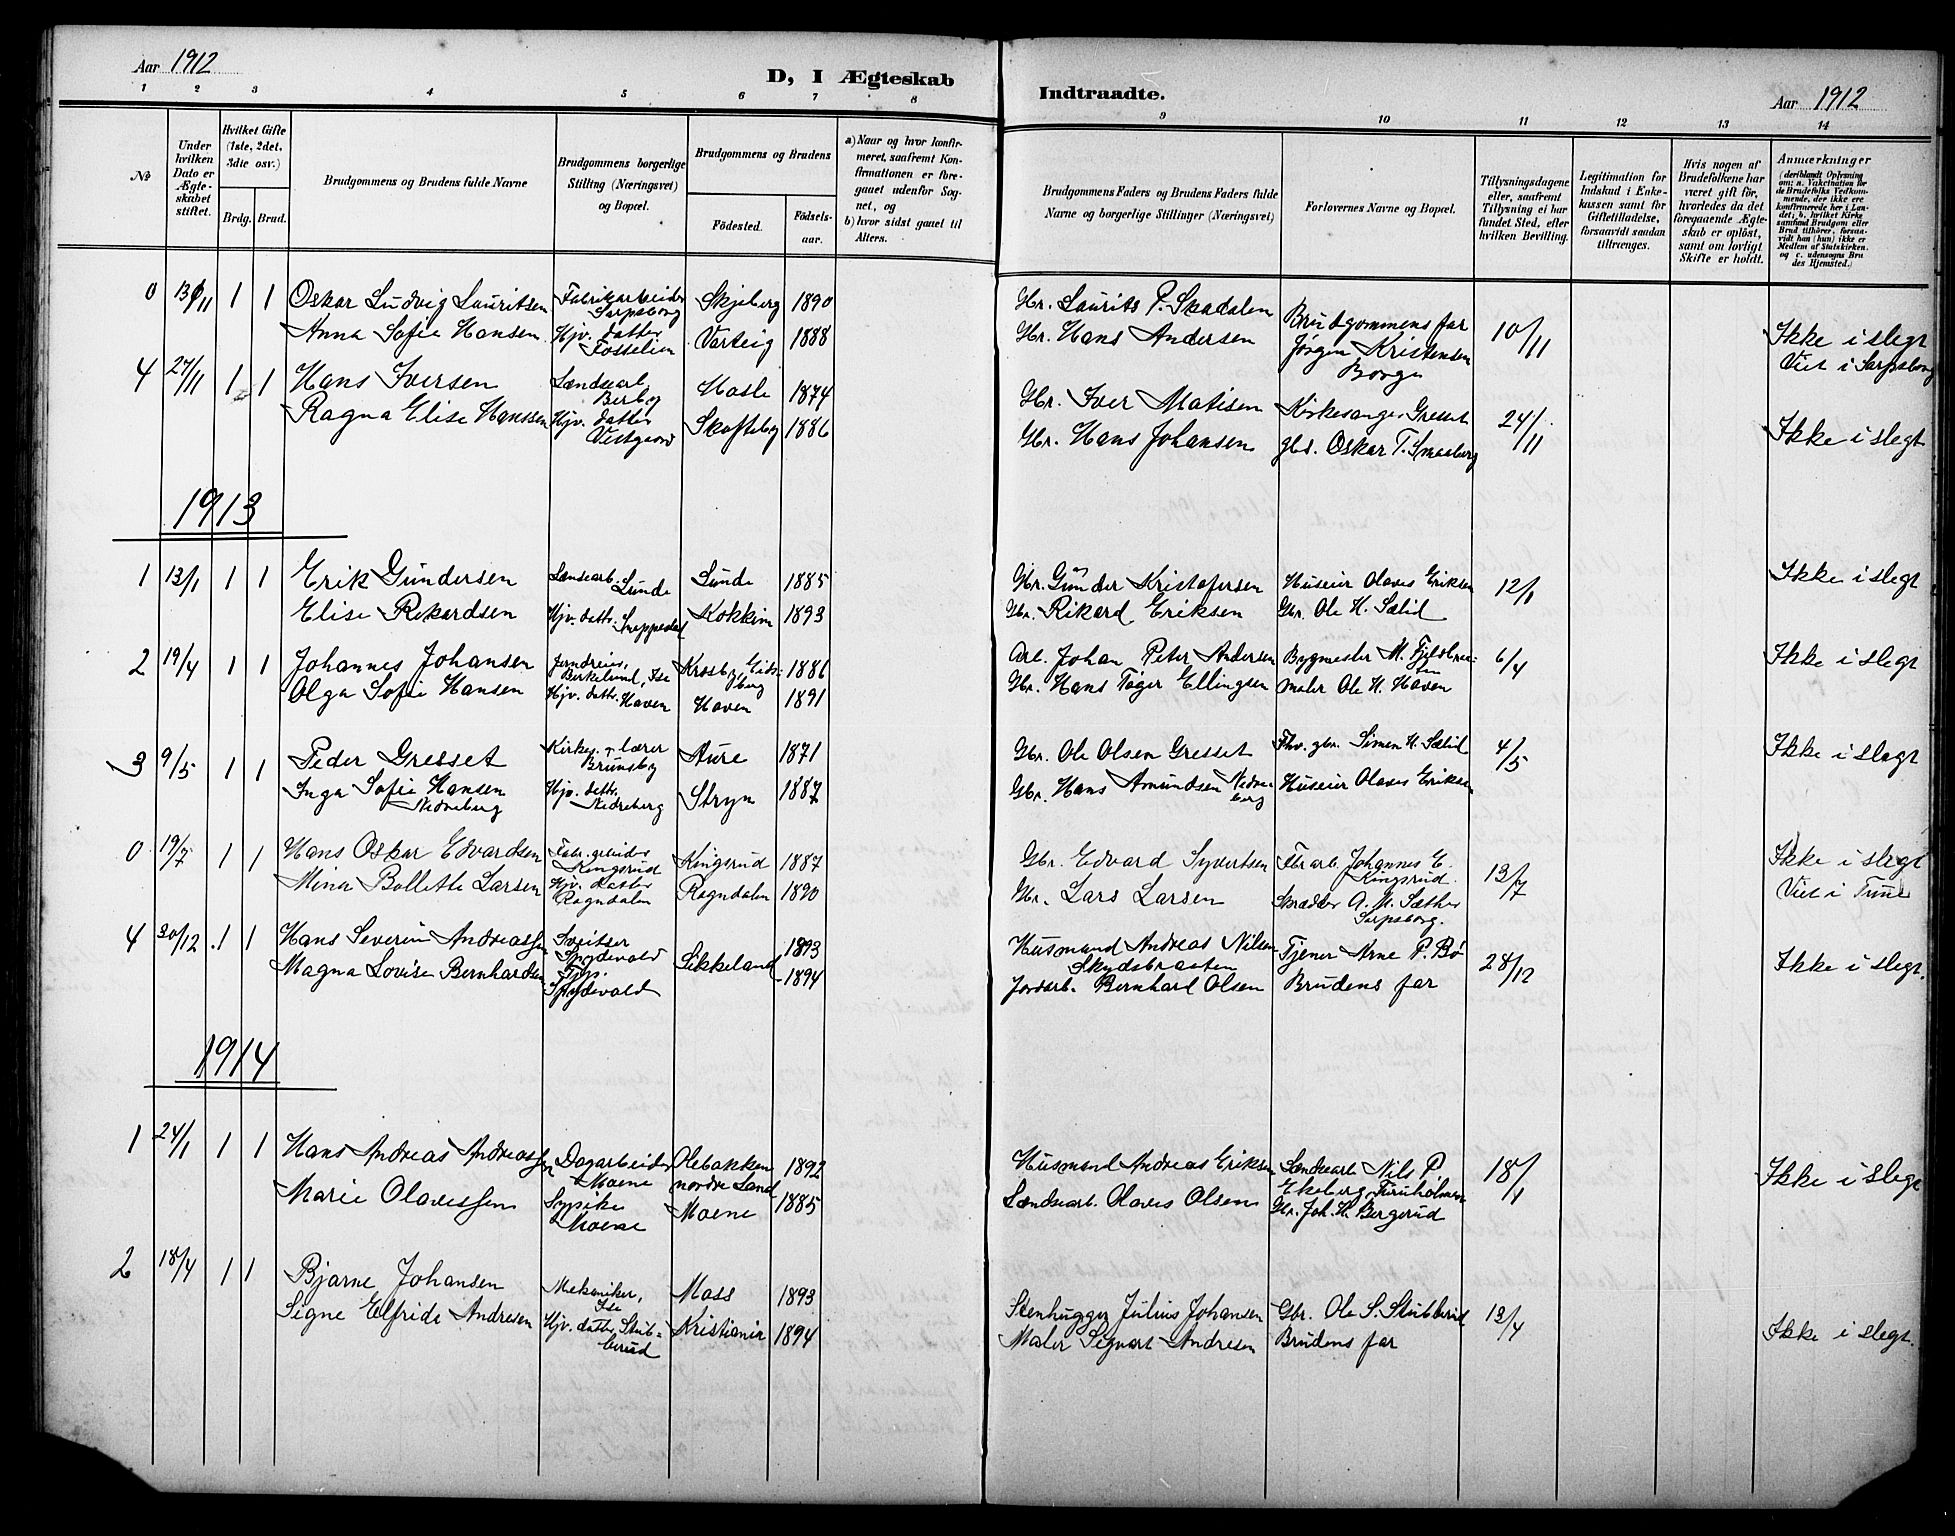 Aar 1912
D, I Ægteskab
Indtraadte.
Aar 1912
1 2 3 4 5 6 7 8 9 10 11 12 13 14
No
Under hvilken Dato er Ægteskabet stiftet.
Hvilket Gifte (1ste, 2det, 3die osv.)
Brdg. Brud.
Brudgommens og Brudens fulde Navne
Brudgommens borgerlige Stilling (Næringsvei) og Bopæl.
Brudgommens og Brudens
Fødested.
Fødselsaar.
a) Naar og hvor konfirmeret, saafremt Konfirmationen er foregaaet udenfor Sognet, og
b) hvor sidst gaaet til Alters.
Brudgommens Faders og Brudens Faders fulde Navne og borgerlige Stillinger (Næringsvei)
Forlovernes Navne og Bopæl.
Tillysningsdagene eller, saafremt Tillysning ei har fundet Sted, efter hvilken Bevilling.
Legitimation for Indskud i Enkekassen samt for Giftetilladelse, forsaavidt saadan tiltrænges.
Hvis nogen af Brudefolkene har været gift før, hvorledes da det foregaaende Ægteskab er opløst, samt om lovligt Skifte er holdt.
Anmærkninger (deriblandt Oplysning om: a. Vakcination for de Brudefolks Vedkommende, der ikke ere konfirmerede her i Landet; b. hvilket Kirkesamfund Brudgom eller Brud tilhører, forsaavidt han (hun) ikke er Medlem af Statskirken. og c. udensogns Brudes Hjemsted.)
0 13/11 1 1 Oskar Ludvig Lauritsen Fabrikarbeider Sarpsborg Skjeberg 1890 Gbr. Laurits P. Skadalen Brudgommens far 10/11
Anna Sofie Hansen Hjv. datter Fosselien Varteig 1888 Gbr. Hans Andersen Jørgen Kristensen Borge Ikke i slegt
Viet i Sarpsborg
4 27/11 1 1 Hans Iversen Landsearb. Berby Hasle 1874 Gbr. Iver Matisen Kirkesanger Gresset 24/11
Ragna Elise Hanssen Hjv. datter Vestgaard Skofteby 1886 Gbr. Hans Johansen gbd. Oskar T. Smaaberg Ikke i slegt
1913
1 13/1 1 1 Erik Gundersen Lænsearb. Lunde Lunde 1885 Gbr. Gunder Kristofersen Huseier Olaves Eriksen 12/1 Ikke i slegt
Elise Rikardsen Hjv. dattr. Kokkim 1893 Gbr. Rikard Eriksen Gbr. Ole H. Sælid
2 19/4 1 1 Johannes Johansen Jerndreier, Birkelund, Ise Krosby Eidsberg 1886 Arb. Johan Peter Andersen Bygmester M. 6/4 Ikke i slegt
Olga Sofie Hansen Hjv. dattr. Haven Haven 1891 Gbr. Hans Tøger Ellingsen maler Ole H. Haven
3 9/5 1 1 Peder Gresset Kirkes. + lærer Brunsby Aure 1871 Gbr. Ole Olsen Gresset Fhv. gbr. Simen H. Sælid 4/5 Ikke i slegt
Inga Sofie Hansen Nedreberg Hjv. dattr. Nedreberg Stryn 1887 Gbr. Hans Amundsen Nedreberg Huseier Olaves Eriksen
0 19/7 1 1 Hans Oskar Edvardsen Fabr. arbeider Kingsrud Kingsrud 1887 Gbr. Edvard Syvertsen Fbr arb. Johannes E. Kingsrud 13/7 Ikke i slegt
Mina Bollette Larsen Hjv. datter Ragndalen Ragndalen 1890 Gbr. Lars Larsen Skrædder A. M. Sæther Sarpsborg. Viet i Tune
4 30/12 1 1 Hans Severin Andreassen Sveitser Spydevold Sikkeland 1893 Husmand Andreas Nilsen Skydsbraaten Tjener Arne P. Bø 28/12 Ikke i slegt.
Magna Lovise Bernhardsen Tjp. Spydevold 1894 Jordarb. Bernhard Olsen Brudens far
1914
1 24/1 1 1 Hans Andreas Andreassen Dagarbeider Moene Olebakken nordre Sand 1892 Husmand Andreas Eriksen Lændsearb. Nils P. Ekeberg, Furuholmen 18/1 Ikke i slegt
Marie Olavessen Sypike Moene Moene 1885 Lændsearb. Olaves Olsen Gbr. Joh. H. Bergerud
2 18/4 1 1 Bjarne Johansen Mekaniker, Ise Moss 1893 Stenhugger Julius Johansen Gbr. Ole S. Stubberud 13/4
Signe Elfride Andresen Hjv. datter Stubberud Kristiania 1894 Maler Segvart Andresen Brudens far Ikke i slegt.